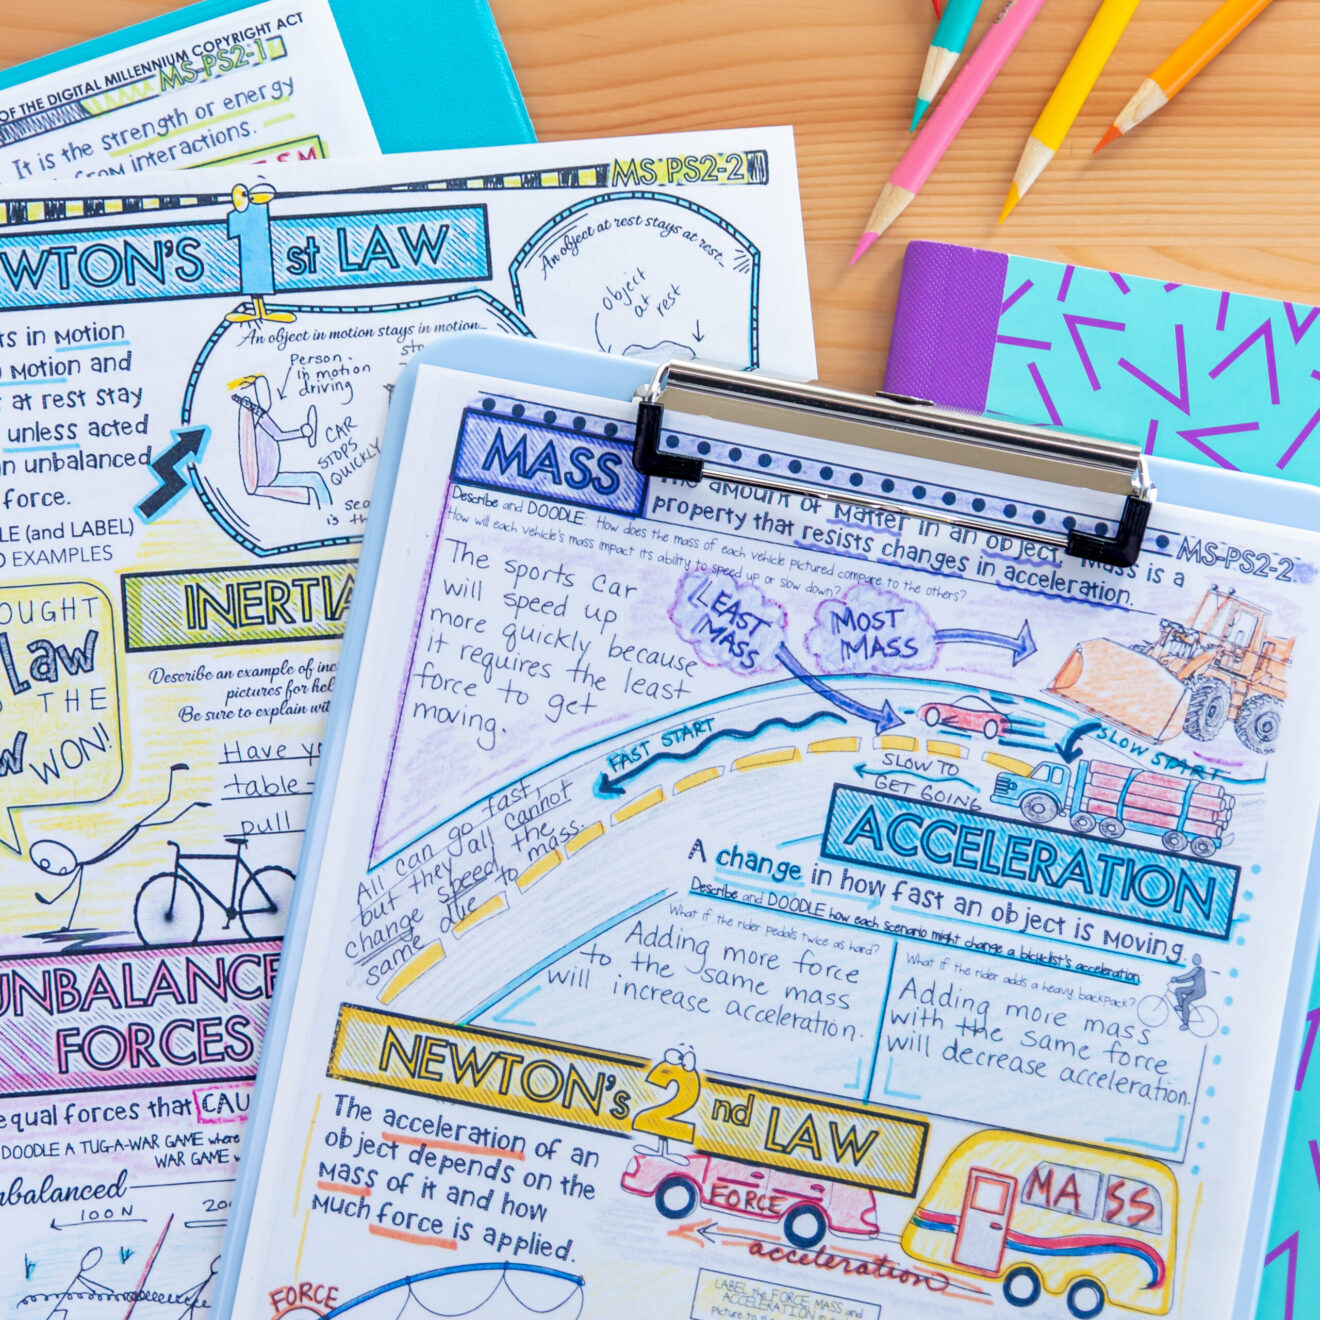 OF THE DIGITAL MILLENNIUM COPYRIGHT ACT
MS-PS2-1
It is the strength or energy
from interactions.
MS-PS2-2
NEWTON'S 1st LAW
in MOTION
MOTION and
at rest stay
unless acted
an unbalanced
force.
(and LABEL)
EXAMPLES
An object in motion stays in motion...
Person
in motion
driving
CAR
STOPS
QUICKLY
An object at rest stays at rest...
object
at rest
INERTIA
Describe an example of
pictures for
Be sure to explain
Have
table
pull
Law
THE
WON!
UNBALANCED
FORCES
equal forces that
DOODLE A TUG-A-WAR GAME where
WAR GAME
100 N
MASS
The amount of matter in an object. Mass is a
property that resists changes in acceleration.
MS-PS2-2
Describe and DOODLE. How does the mass of each vehicle pictured compare to the others?
How will each vehicle's mass impact its ability to speed up or slow down?
The sports car
will speed up
more quickly because
it requires the least
force to get
moving.
LEAST
MASS
MOST
MASS
FAST START
SLOW START
SLOW TO
GET GOING
All can go fast,
but they all cannot
change speed the
same due to mass.
ACCELERATION
A change in how fast an object is moving.
Describe and DOODLE how each scenario might change a bicyclist's acceleration.
What if the rider pedals twice as hard?
Adding more force
to the same mass
will increase acceleration.
What if the rider adds a heavy backpack?
Adding more mass
with the same force
will decrease acceleration.
NEWTON'S 2nd LAW
The acceleration of an
object depends on the
mass of it and how
much force is applied.
FORCE
MASS
acceleration
FORCE
LABEL the FORCE MASS and
ACCELERATION